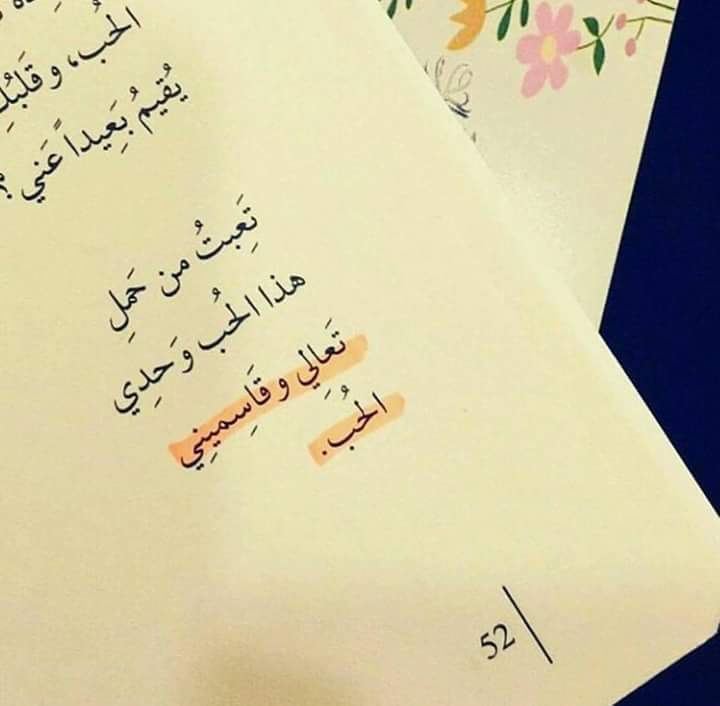 الحُب، و قَلبُكِ
يُقيمُ بِعَيداً عَني ؟
تِعَبتُ من حَملِ
هذا الحُب وَحدِي
تَعَالي و قَاسِميِنِي
الحُبَ.
52